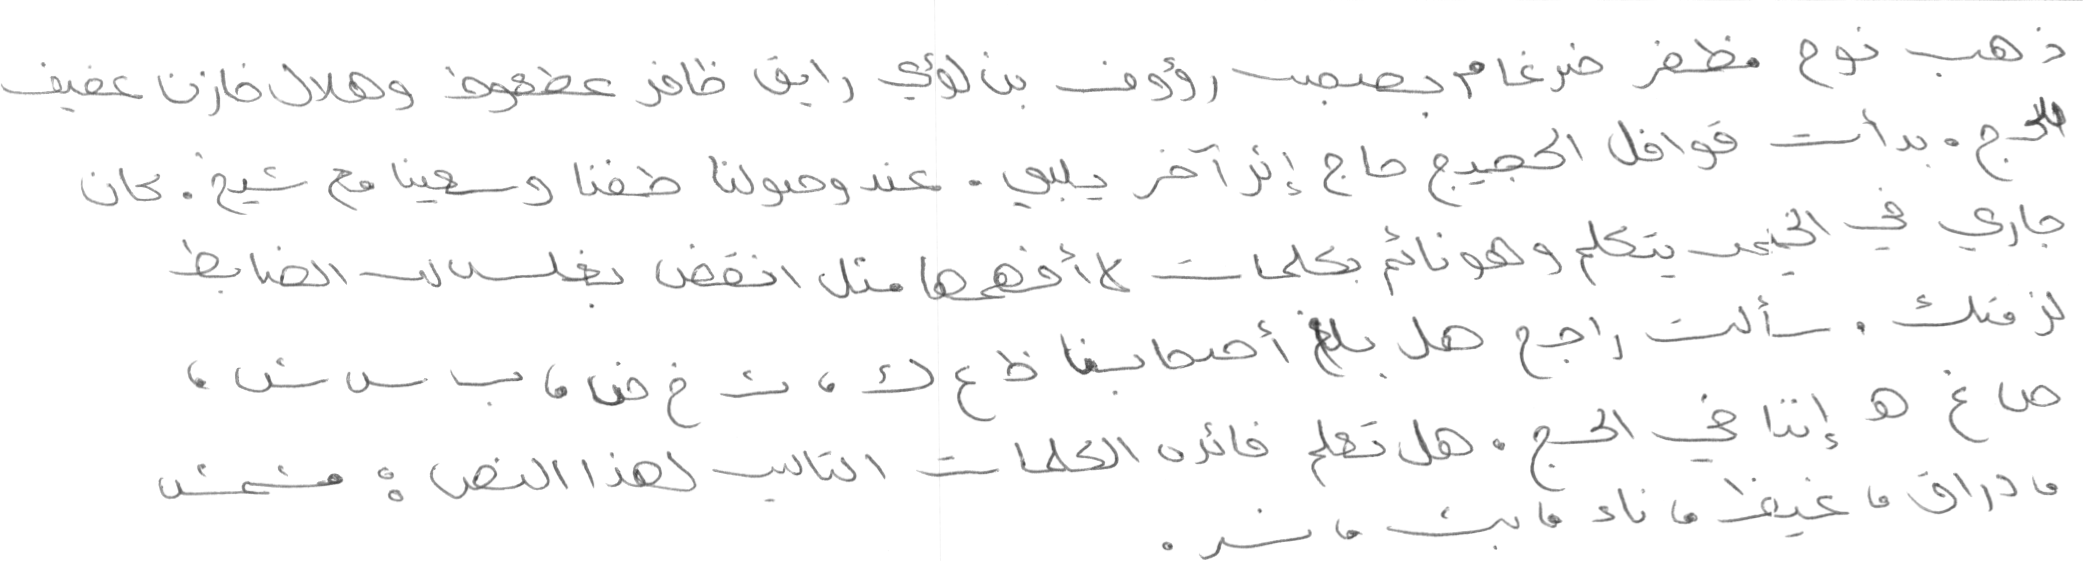 ذهب نوح مظفر ضرغام بصحبة رؤوف بن لؤي رايق ظافر عطعوط وهلال خازن عفيف
للحج. بدأت قوافل الحجيج حاج إثر آخر يلبي. عند وصولنا طفنا وسعينا مع شيخ. كان
جاري في الخيمة يتكلم وهو نائم بكلمات لا أفهمها مثل انقض بغلسه لك الضابط
لزمتك. سألت راجح هل بلغ أصحابنا ظ ع ك، ث خ ض، ب س ش،
ص غ هـ إننا في الحج. هل تعلم فائدة الكلمات التالية لهذا النص: مشمش
، دراق، غيظ، ناء، بث، شر.